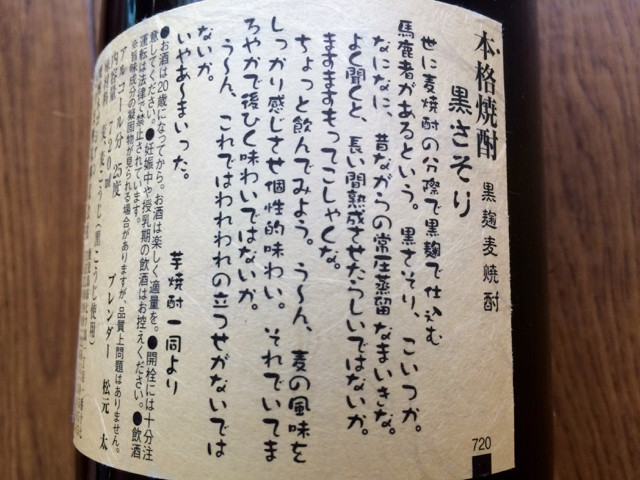 本格焼酎 黒麹麦焼酎
黒さそり
世に麦焼酎の分際で黒麹で仕込む
馬鹿者があるという。黒さそり、こいつか。
なになに、昔ながらの常圧蒸留なまいきな。
よく聞くと、長い間熟成させたらしいではないか。
ますますもってこしゃくな。
ちょっと飲んでみよう。う〜ん、麦の風味を
しっかり感じさせ個性的味わい。それでいてま
ろやかで後ひく味わいではないか。
う〜ん、これではわれわれの立つせがないでは
ないか。
いやあ〜まいった。
芋焼酎一同より
●お酒は20歳になってから。お酒は楽しく適量を。●開栓には十分注
意してください。●妊娠中や授乳期の飲酒はお控えください。●飲酒
運転は法律で禁止されています。
※旨味成分の凝固物が見られる場合がありますが、品質上問題はありません。
アルコール分 25度 ブレンダー 松元 太
内容量 720ml
原材料 麦、麦こうじ(黒こうじ使用)
720